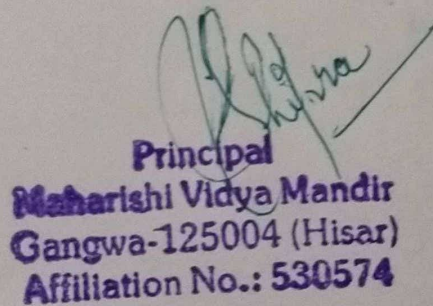 Principal
Maharishi Vidya Mandir
Gangwa-125004 (Hisar)
Affiliation No.: 530574